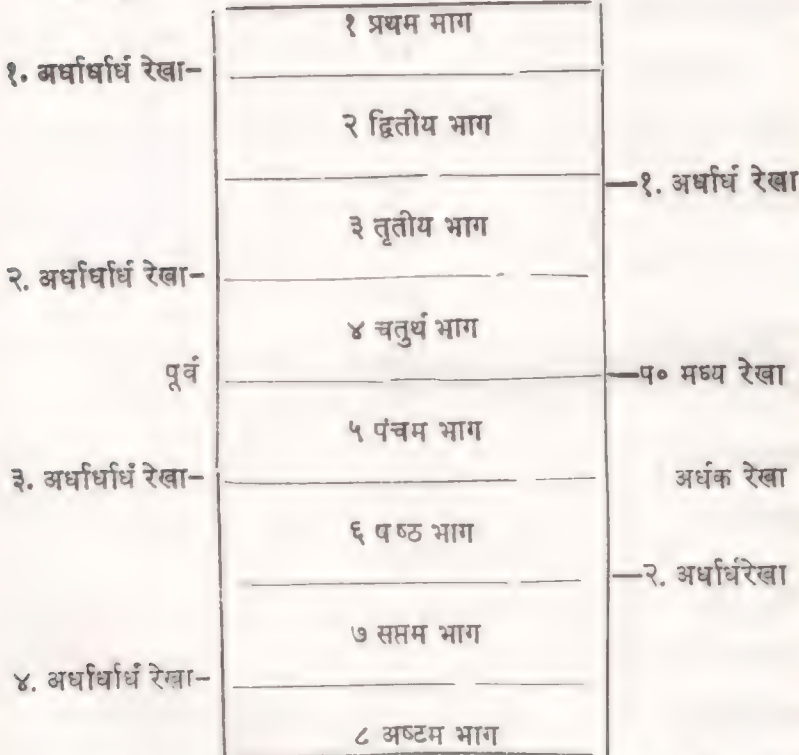 १ प्रथम भाग
१. अर्धार्धार्ध रेखा-
२ द्वितीय भाग
१. अर्धार्ध रेखा
३ तृतीय भाग
२. अर्धार्धार्ध रेखा-
४ चतुर्थ भाग
पूर्व
प० मध्य रेखा
५ पंचम भाग
३. अर्धार्धार्ध रेखा-
अर्धक रेखा
६ षष्ठ भाग
२. अर्धार्धरेखा
७ सप्तम भाग
४. अर्धार्धार्ध रेखा-
८ अष्टम भाग